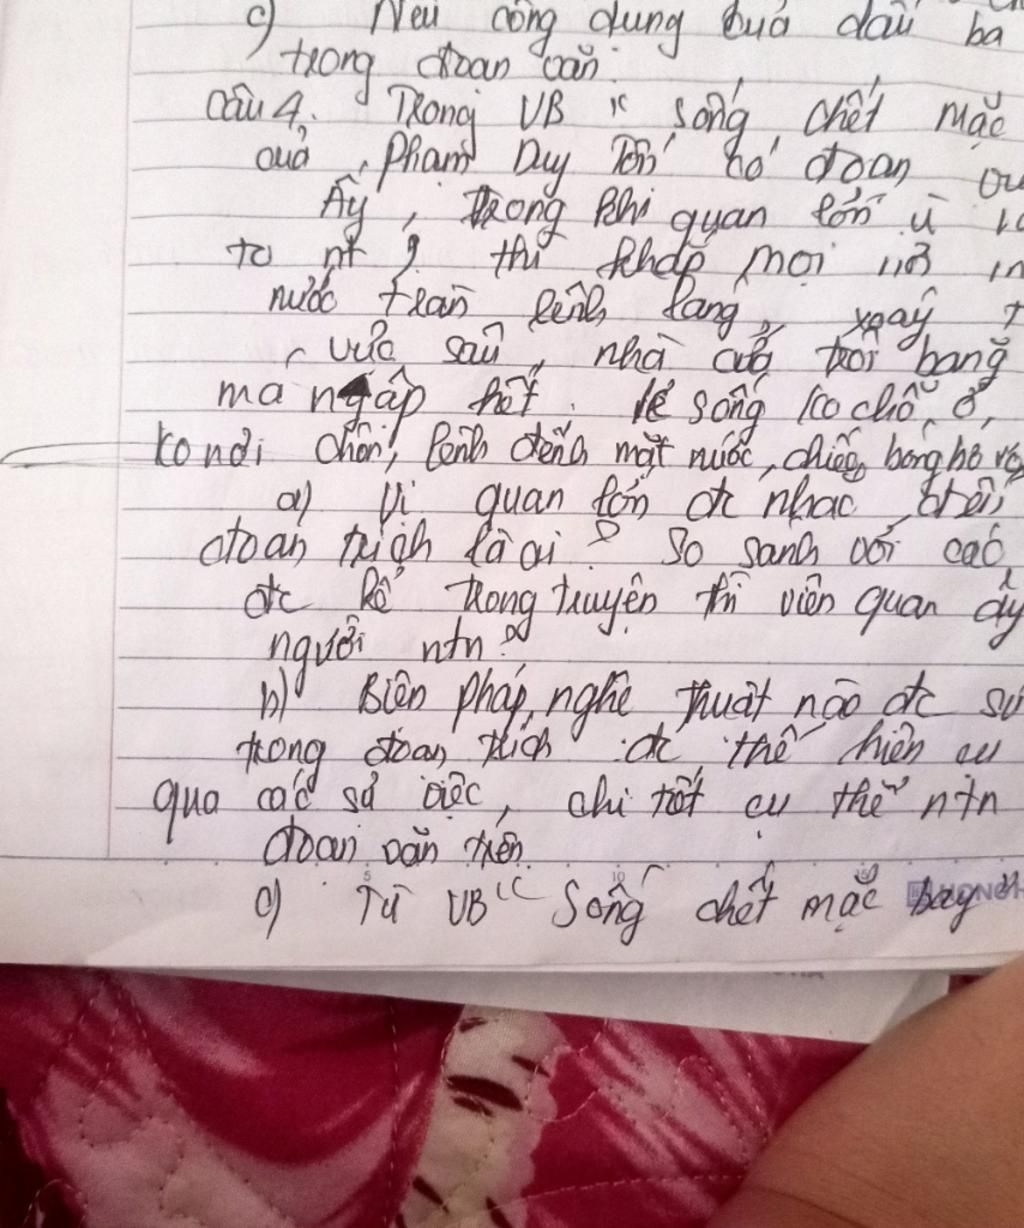 c) Nêu công dụng của dấu ba
trong đoạn văn.
Câu 4. Trong VB "Sống, chết mặc
của, Phạm Duy Tốn có đoạn
Ấy, trong khi quan lớn ù
to nt, thì khắp mọi nơi
nước tràn lênh láng, xoáy
vực sâu, nhà cửa trôi băng
ma ngập hết. kẻ sống ko chỗ ở,
ko nơi chôn, lênh đênh mặt nước, chiếc bóng bơ vơ
a) Vị quan lớn đc nhắc trên
đoạn trích là ai? So sánh với các
đc kể trong truyện thì viên quan ấy
người ntn?
b) Biện pháp nghệ thuật nào đc sử
trong đoạn trích đc thể hiện cụ
qua các sự việc, chi tiết cụ thể ntn
đoạn văn trên
c) Từ VB "Sống chết mặc bay"